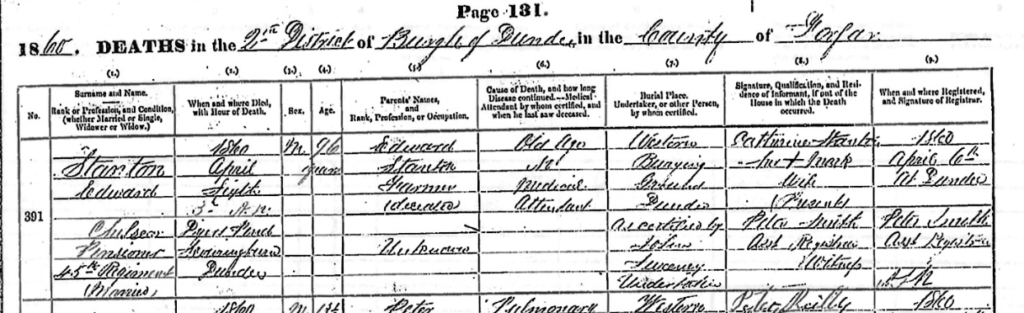 Page 131.
1860. DEATHS in the 2nd District of Burgh of Dundee in the County of Forfar
(1.) (2.) (3.) (4.) (5.) (6.) (7.) (8.) (9.)
No.
Surname and Name.
Rank or Profession, and Condition,
(whether Married or Single,
Widower or Widow.)
When and where Died,
with Hour of Death.
Sex.
Age.
Parents' Names,
and
Rank, Profession, or Occupation.
Cause of Death, and how long
Disease continued.—Medical
Attendant by whom certified, and
when he last saw deceased.
Burial Place.
Undertaker, or other Person,
by whom certified.
Signature, Qualification, and Resi-
dence of Informant, if out of the
House in which the Death
occurred.
When and where Registered,
and Signature of Registrar.
391
Stanton
Edward
Chelsea
Pensioner
45th Regiment
Married
1860
April
Fifth
Dundee
M
96
years
Edward
Stanton
Farmer
deceased
Unknown
Old Age
No
Medical
Attendant
Western
Burying
Ground
Dundee
As certified by
John
Sweeney
Undertaker
Catherine Stanton
her X mark
Wife
(Present)
Peter Smith
Asst Registrar
Witness
1860
April 6th
At Dundee
Peter Smith
Asst Registrar
1860
M
Peter
Pulmonary
Western
Reilly
1860